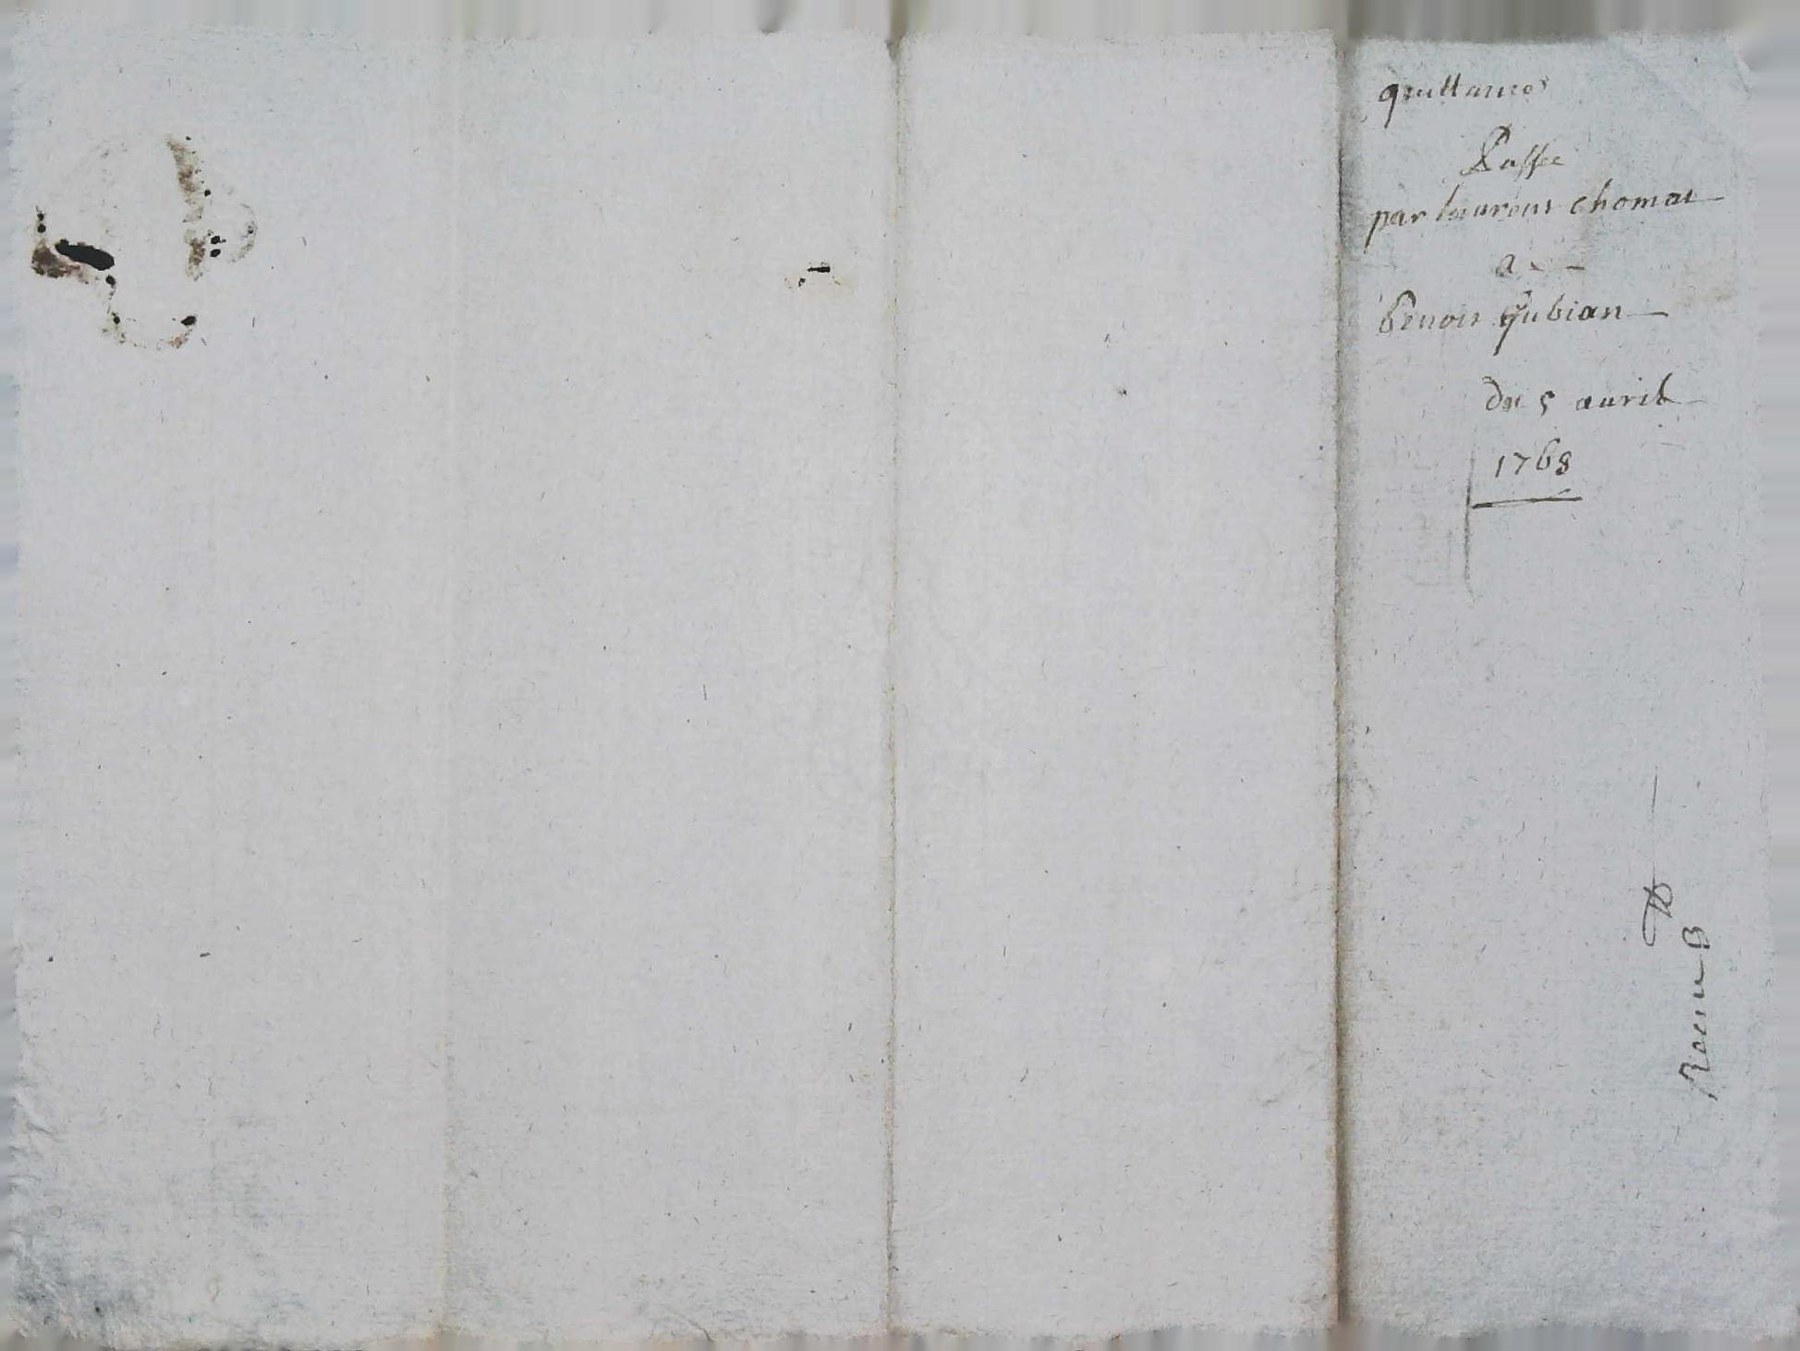 quittance
Passée
par laurent chomat
a
benoit Gubian
du 5 auril
1768